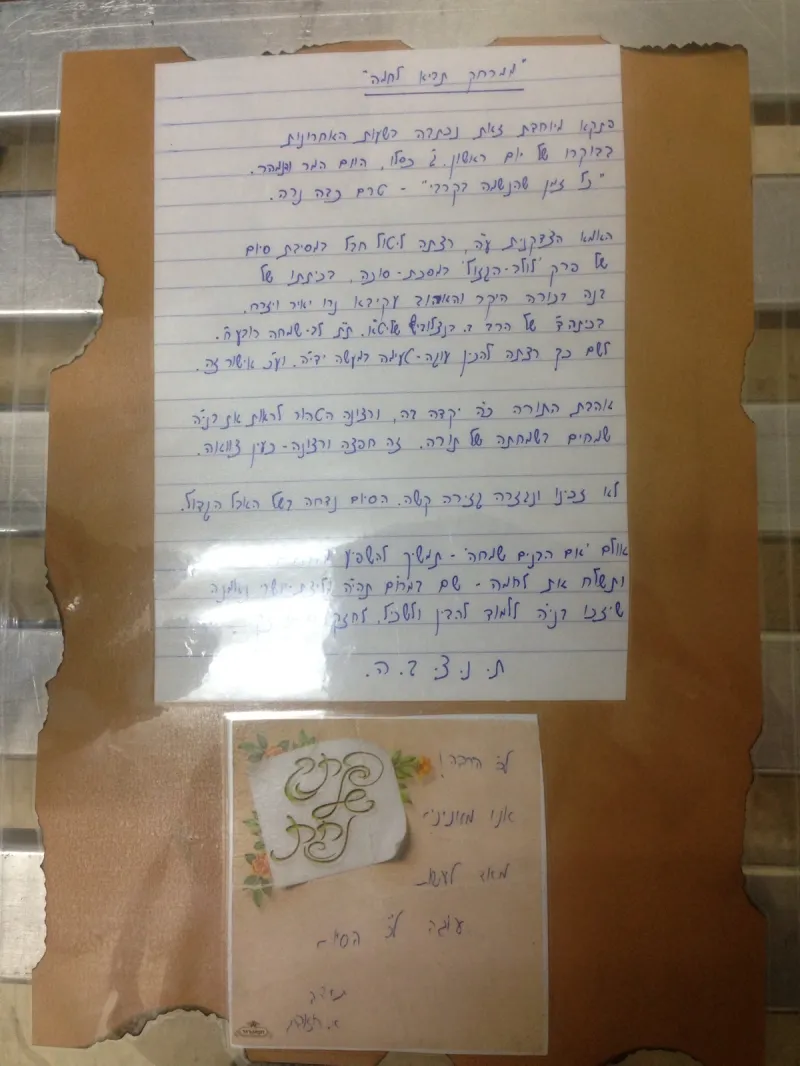 "ממרחק תביא לחמה"
פתקא מיוחדת זאת נכתבה בשעות האחרונות
בבוקרו של יום ראשון ג' כסלו, היום המר והנמהר.
"כל זמן שהנשמה בקרבי" - טרם כבה נרה.
האמא הצדקנית ע"ה, רצתה ליטול חבל במסיבת סיום
של פרק 'לולב-הגזול' במסכת-סוכה, בכיתתו של
בנה בכורה היקר והאהוב עקיבא נרו יאיר ויזרח,
בכיתה ד' של הרב ב. שליט"א. ת"ת לב-שמחה
לשם כך רצתה להכין עוגה-טעימה במעשה ידיה. וע"כ אישור זה.
אהבת התורה כ"כ יקדה בה, ורצונה הטהור לראות את בניה
שמחים בשמחתה של תורה. זה חפצה ורצונה-כעין צוואה.
לא זכינו ונגזרה גזירה קשה. הסיום נדחה בשל האבל הגדול.
אולם 'אם הבנים שמחה' - תמשיך להשפיע
ותשלח את לחמה - שם במרום תהיה מליצת-יושר נאמנה
שיזכו בניה ללמוד להבין ולשכיל,
ת. נ. צ. ב. ה.
פתק
של
נחת
לכ' הרבה!
אנו מעונינים
מאד לעשות
עוגה לכ' הסיום
תודה